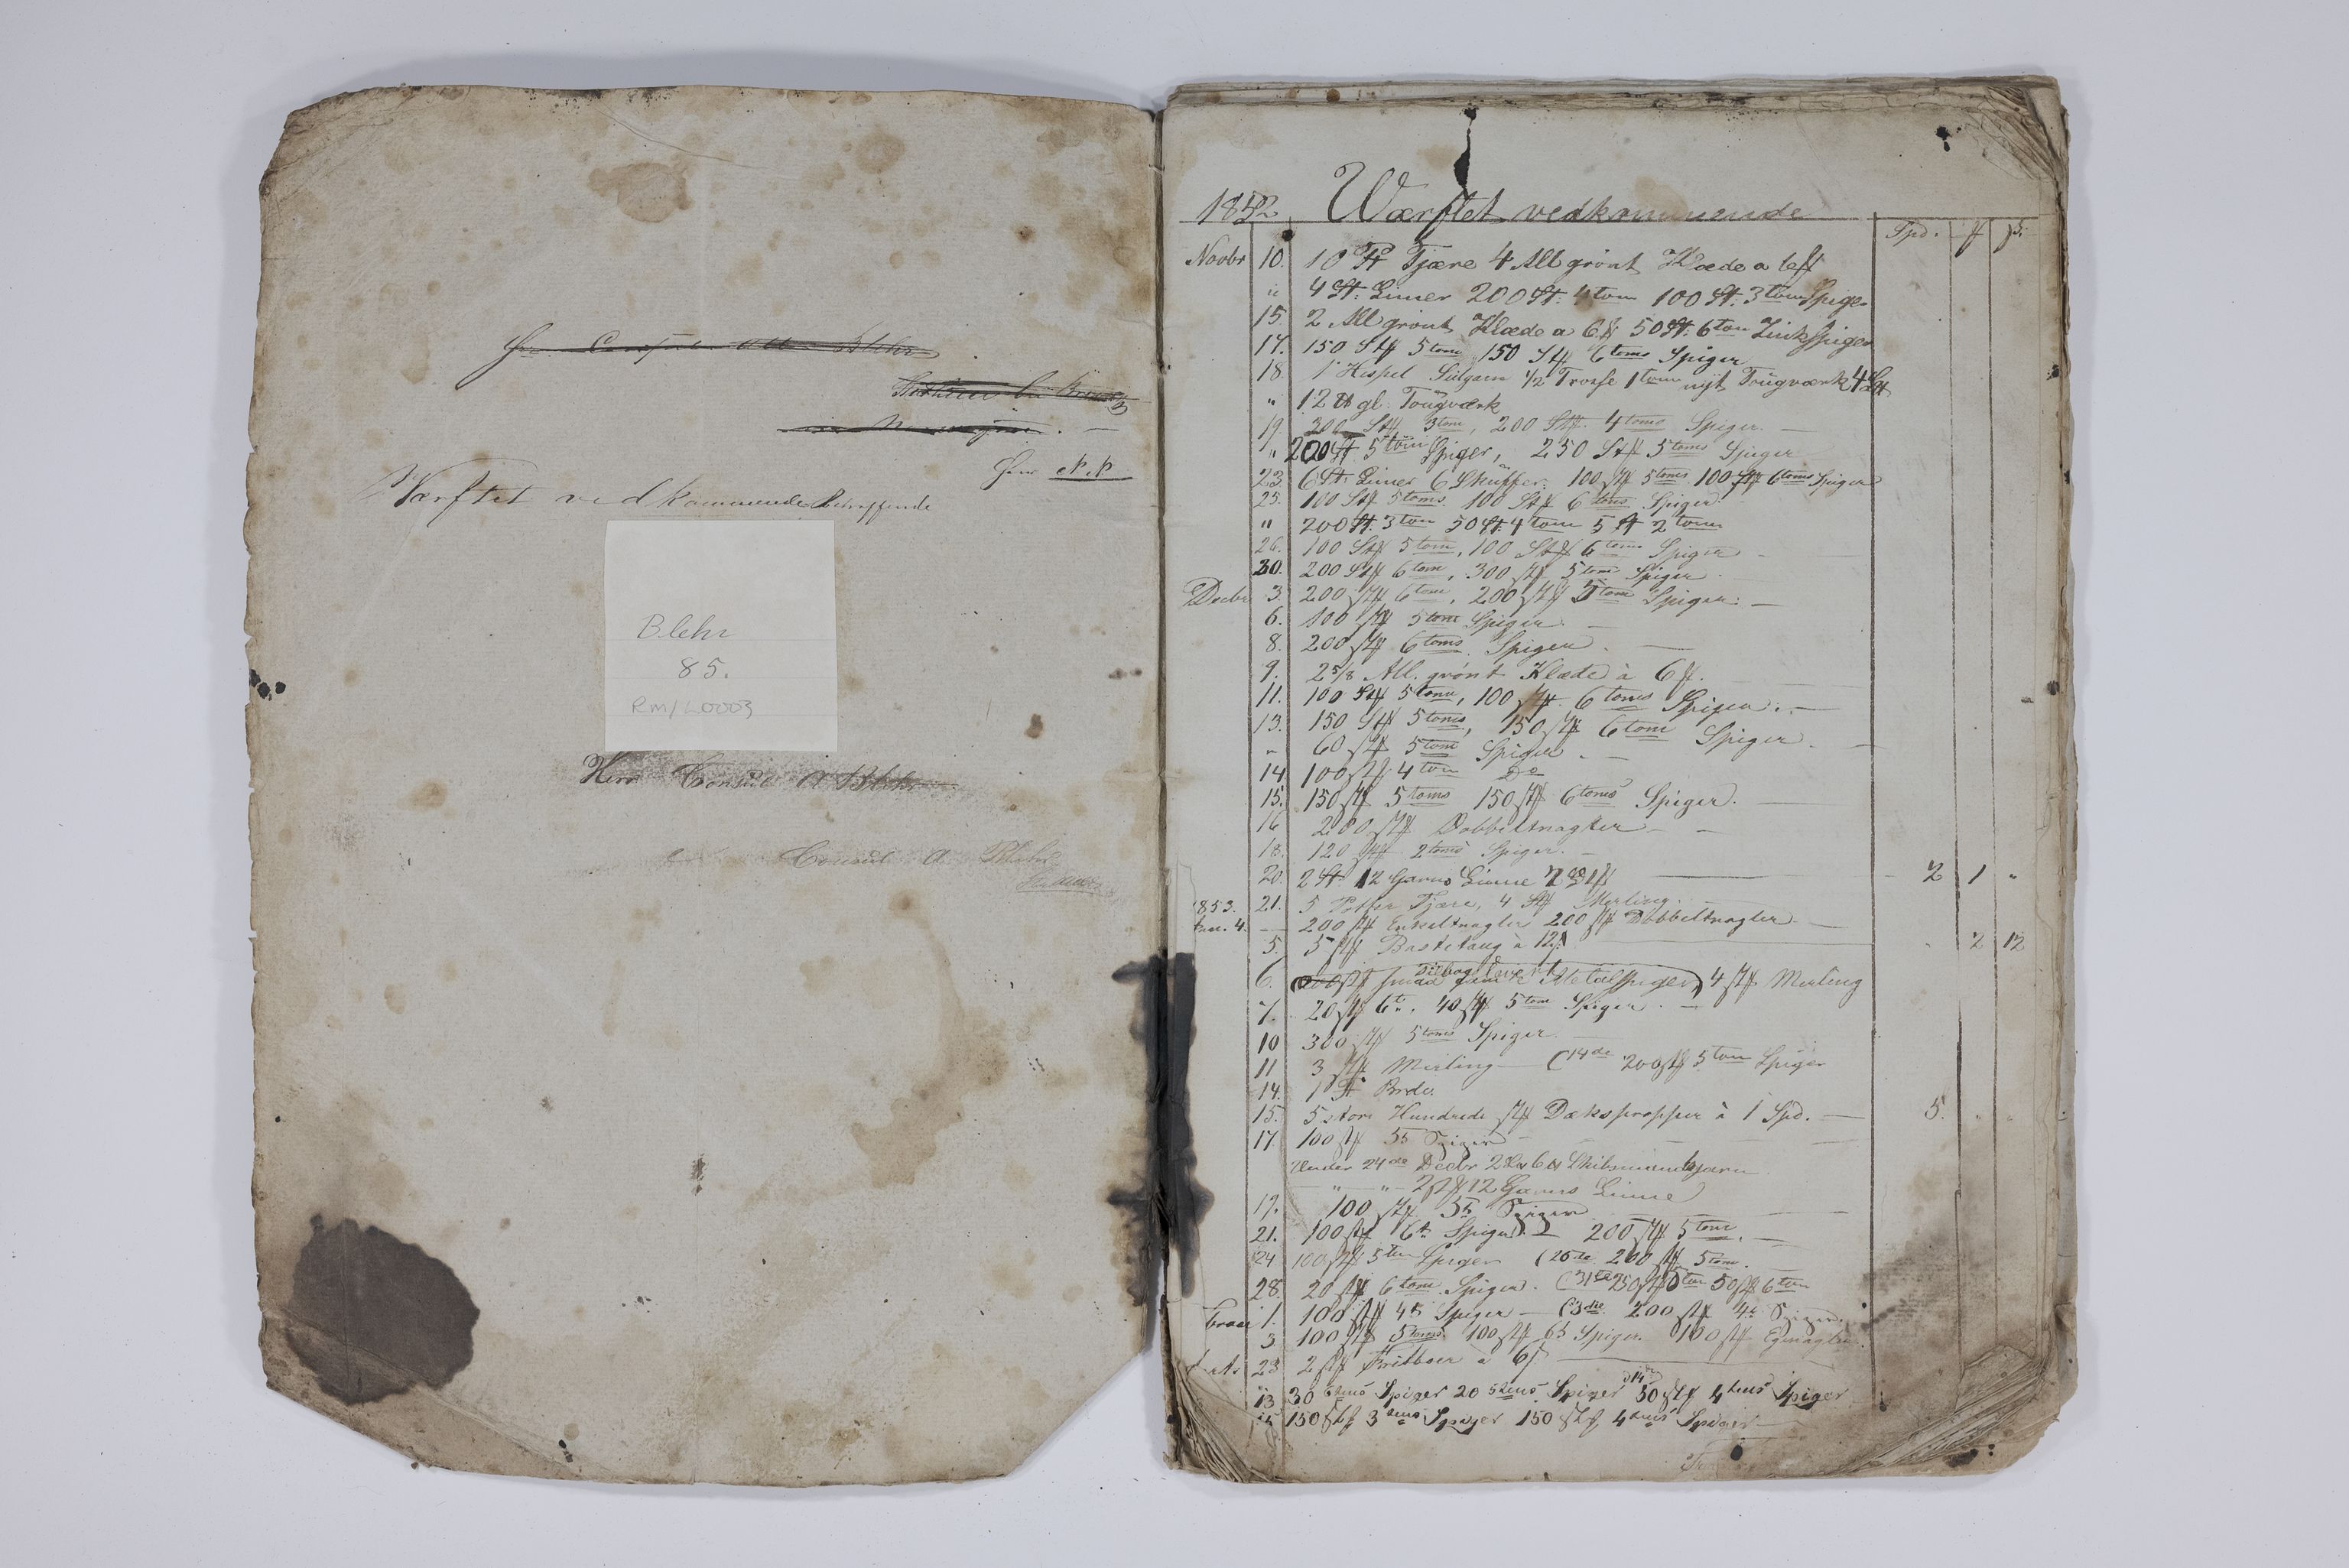 Hr. Consul Blehr
Herr N. N
Værftet vedkommende Betreffende
Blehr
85.
RM/L0003
Herr Consul A Blehr
Consul A Blehr
1852 Værftet vedkommende
Spd. ß
Novbr 10. 10 Tjære 4 All grønt Klæde a
" 4 St. Limer 200 St. 4 tom 100 St. 3 tom Spiger
15. 2 All grønt Klæde a 6 50 St. 6 tom Zink Spiger
17. 150 Stk 5 tom 150 Stk 6 toms Spiger
18. 1 Hespel Seilgarn 1/2 Trosse 1 tom nyt Tougværk
" 12 gl. Tougværk
19. 200 Stk 3 tom, 200 Stk. 4 toms Spiger. —
" 200 St 5 tom Spiger, 250 Stk 5 toms Spiger
23 6 St. Limer 6 Skuffer. 100 Stk 5 toms 100 Stk 6 toms Spiger
25. 100 Stk 5 toms. 100 Stk 6 toms Spiger.
" 200 St. 3 tom 50 St. 4 tom 5 2 tom
26. 100 Stk 5 tom, 100 Stk 6 toms Spiger —
30. 200 Stk 6 tom, 300 Stk 5 tom Spiger.
Decbr 3. 200 Stk 6 tom, 200 Stk 5 tom Spiger. —
6. 100 Stk 5 tom Spiger —
8. 200 Stk 6 toms Spiger. —
9. 2 5/8 All. grønt Klæde à 6
11. 100 Stk 5 tom, 100 Stk. 6 toms Spiger. —
13. 150 Stk 5 toms, 150 Stk 6 tom Spiger. —
" 60 Stk 5 tom Spiger. —
14 100 Stk 4 tom Do
15. 150 Stk 5 toms 150 Stk 6 toms Spiger. —
16 200 Stk Dobbeltnagler —
18. 120 Stk 2 toms Spiger. —
20. 2 St 12 Garns Linne — 2 1 "
1853. 21. 5 Potter Tjære, 4 Stk Merling. —
Jan. 4. — 200 Stk Enkeltnagler 200 Stk Dobbeltnagler —
5. 5 Stk Bastetaug à 12 2 12
6. Metalspiger 4 Stk Merling
7. 20 Stk 6 t. 40 Stk 5 tom Spiger. —
10 300 Stk 5 toms Spiger —
11 3 Stk Merling — (14de 200 Stk 5 tom Spiger
14. 1 St
15. 5 store Hundrede Stk Dæksproppper à 1 Spd. — 5. " "
17 100 Stk 5 t Spiger —
Under 24de Decbr
" " 2 Stk 12 Garns Linne
19. 100 Stk 5 t Spiger —
21. 100 Stk 6 t Spiger. 200 Stk 5 tom. —
24 100 Stk 5 tom Spiger (26de 200 Stk 5 tom.
28. 20 Stk 6 tom Spiger. (31te 250 Stk 5 tom 50 Stk 6 tom
1. 100 Stk 4 t Spiger — (3die 200 Stk 4 t Spiger.
3 100 Stk 5 toms 100 Stk 6 t Spiger. 100 Stk Egenagler
23 2 Stk à 6
13 30 6 toms Spiger 20 5 toms Spiger 14 50 Stk 4 toms Spiger
15 150 Stk 3 toms Spiger 150 Stk 4 toms Spiger